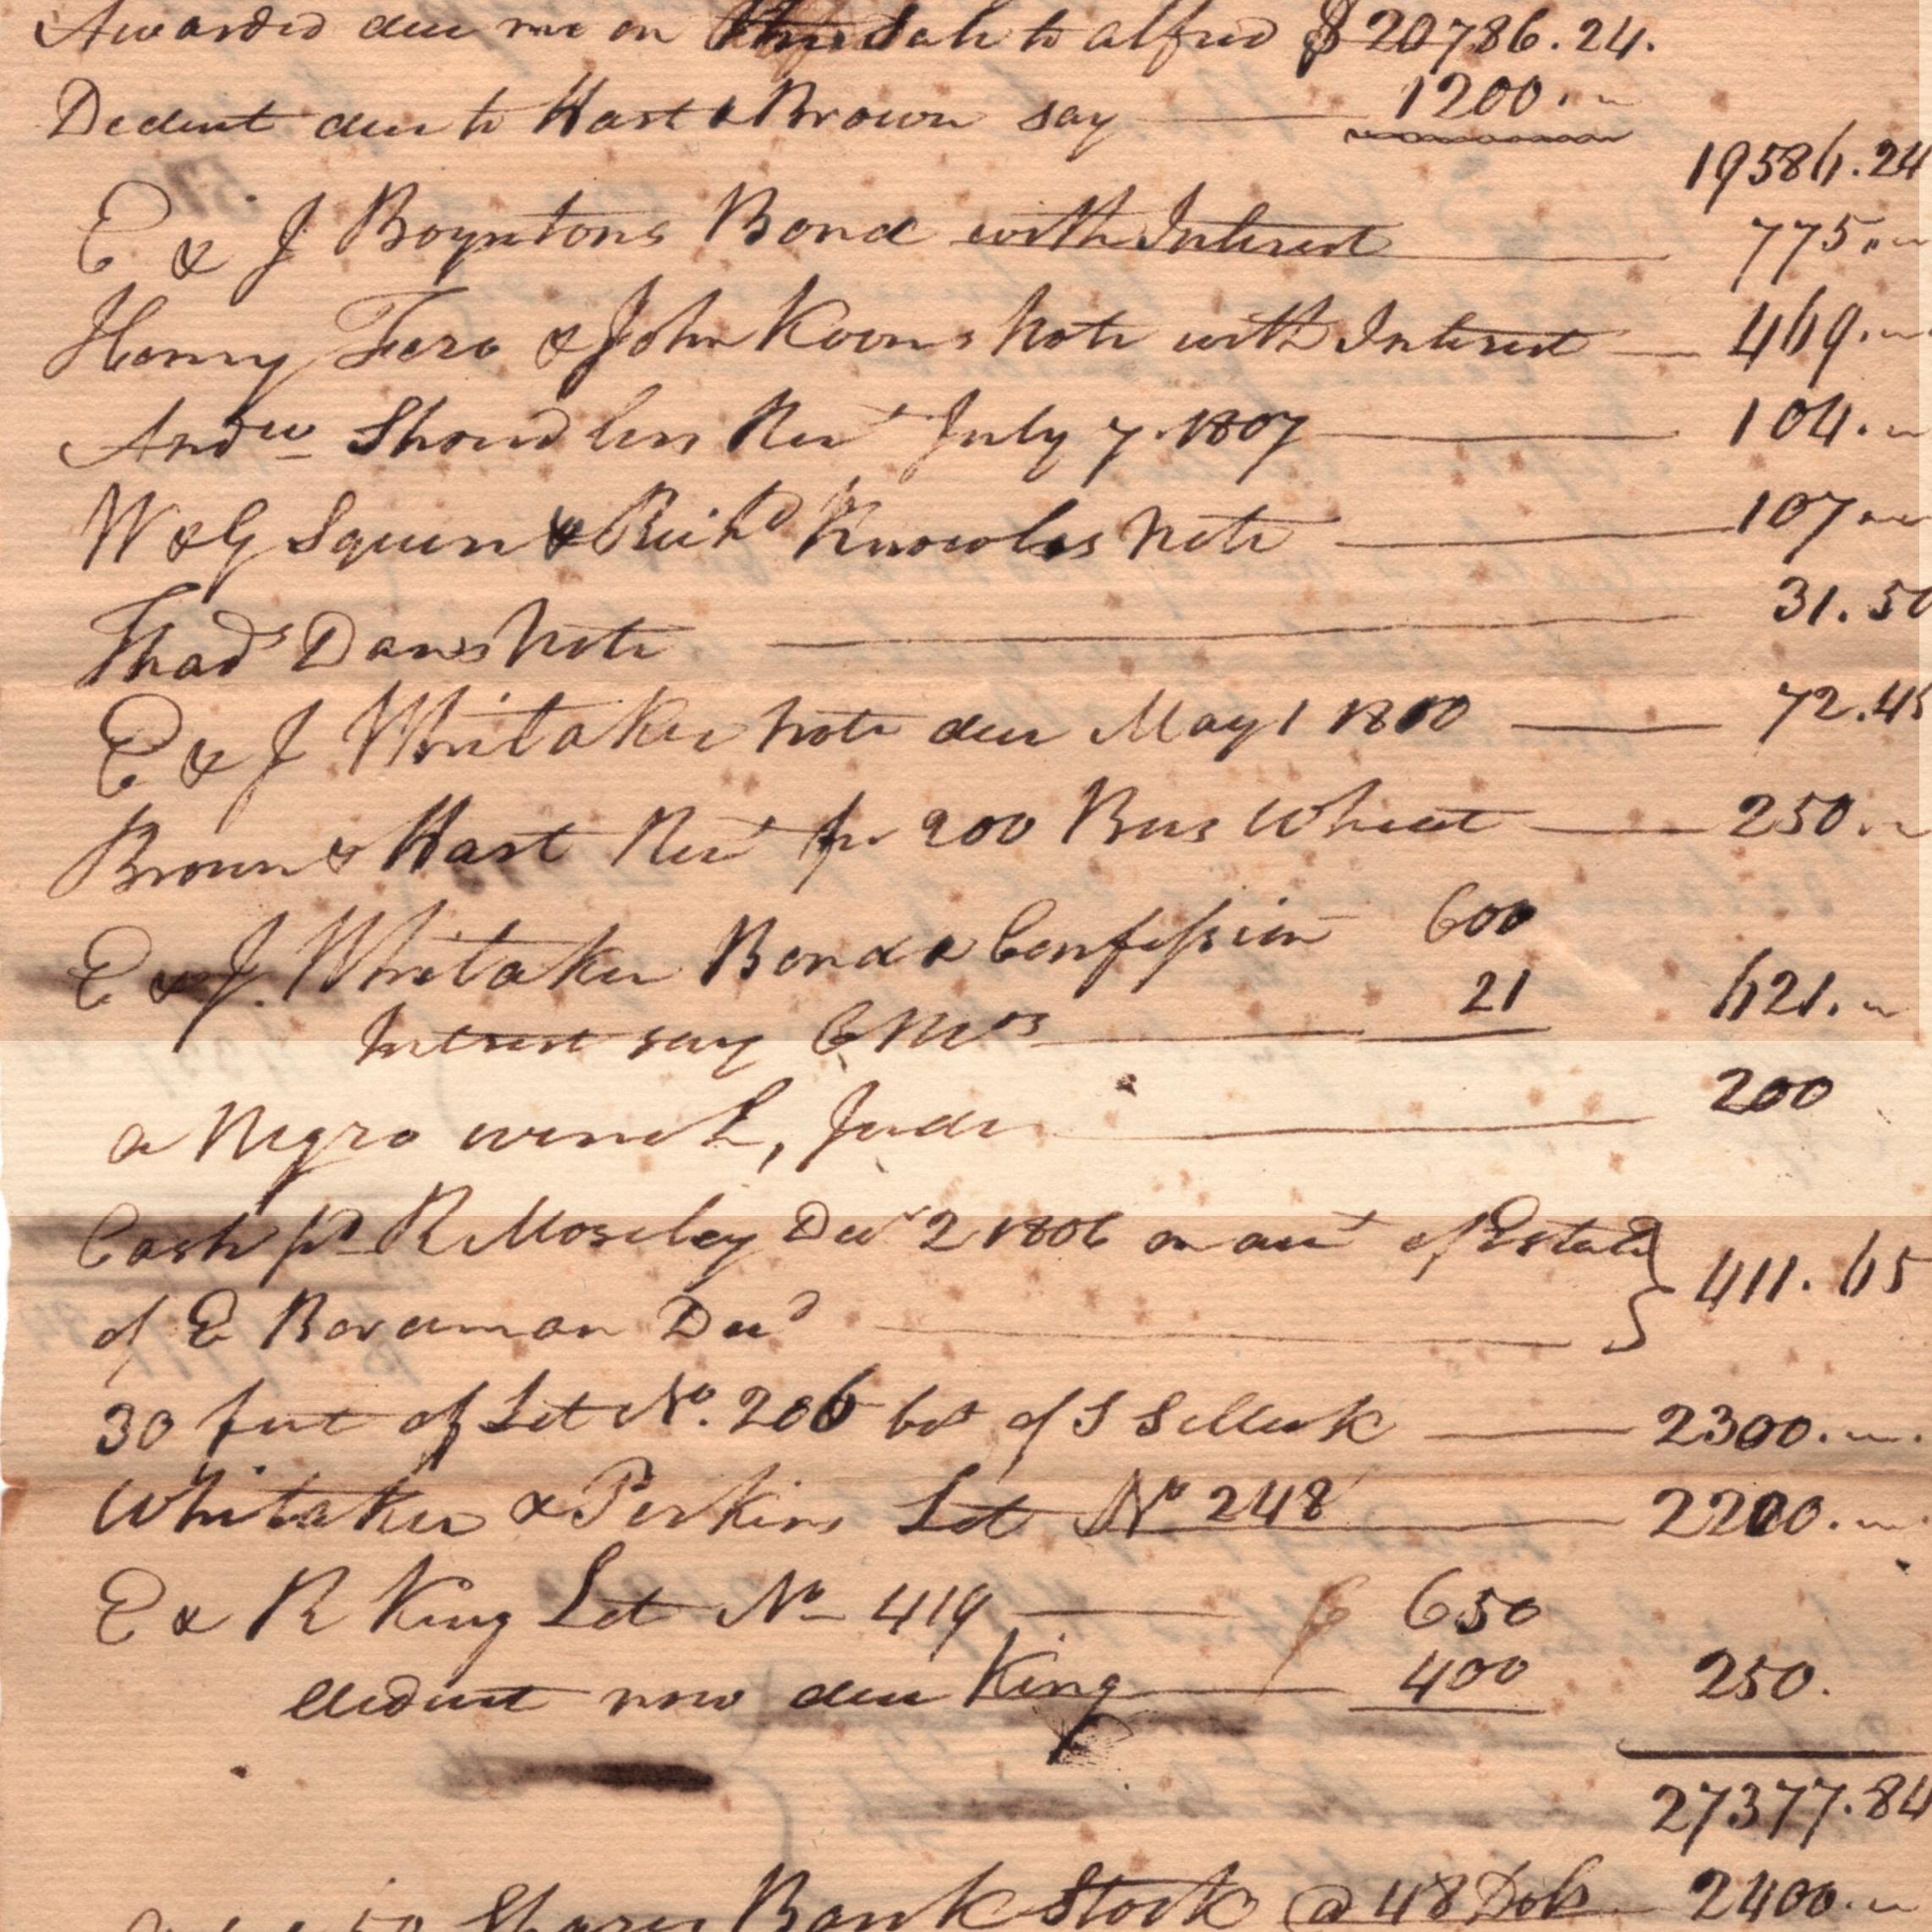 Awarded due me on Sale to alfred $20786.24.
Deduct due to Hart & Brown say 1200.
19586.24
E & J Boyntons Bond with Interest 775.
Henry Fero & John Koons Note with Interest 469.
Andw Shoudlers Rect July 7. 1807 104.
W & G Squier & Richd Knowles Note 107
Thads Danes Note 31.50
E & J Whitaker Note due May 1 1810 72.45
Brown & Hart Rect for 200 Bus Wheat 250.
E & J. Whitaker Bond & Confession 600
Interest say 6 Mos 21 621.
a Negro wench, Jude 200
Cash pd R Moseley Decr 2 1806 on acct of Estate
of E Boardman Decd 411.65
30 feet of Lot No. 206 bot of S Selleck 2300.
Whitaker & Perkins Lot No 248 2200.
E & R King Lot No 419 650
deduct now due King 400 250.
27377.84
50 Shares Bank Stock @ 48 Dols 2400.